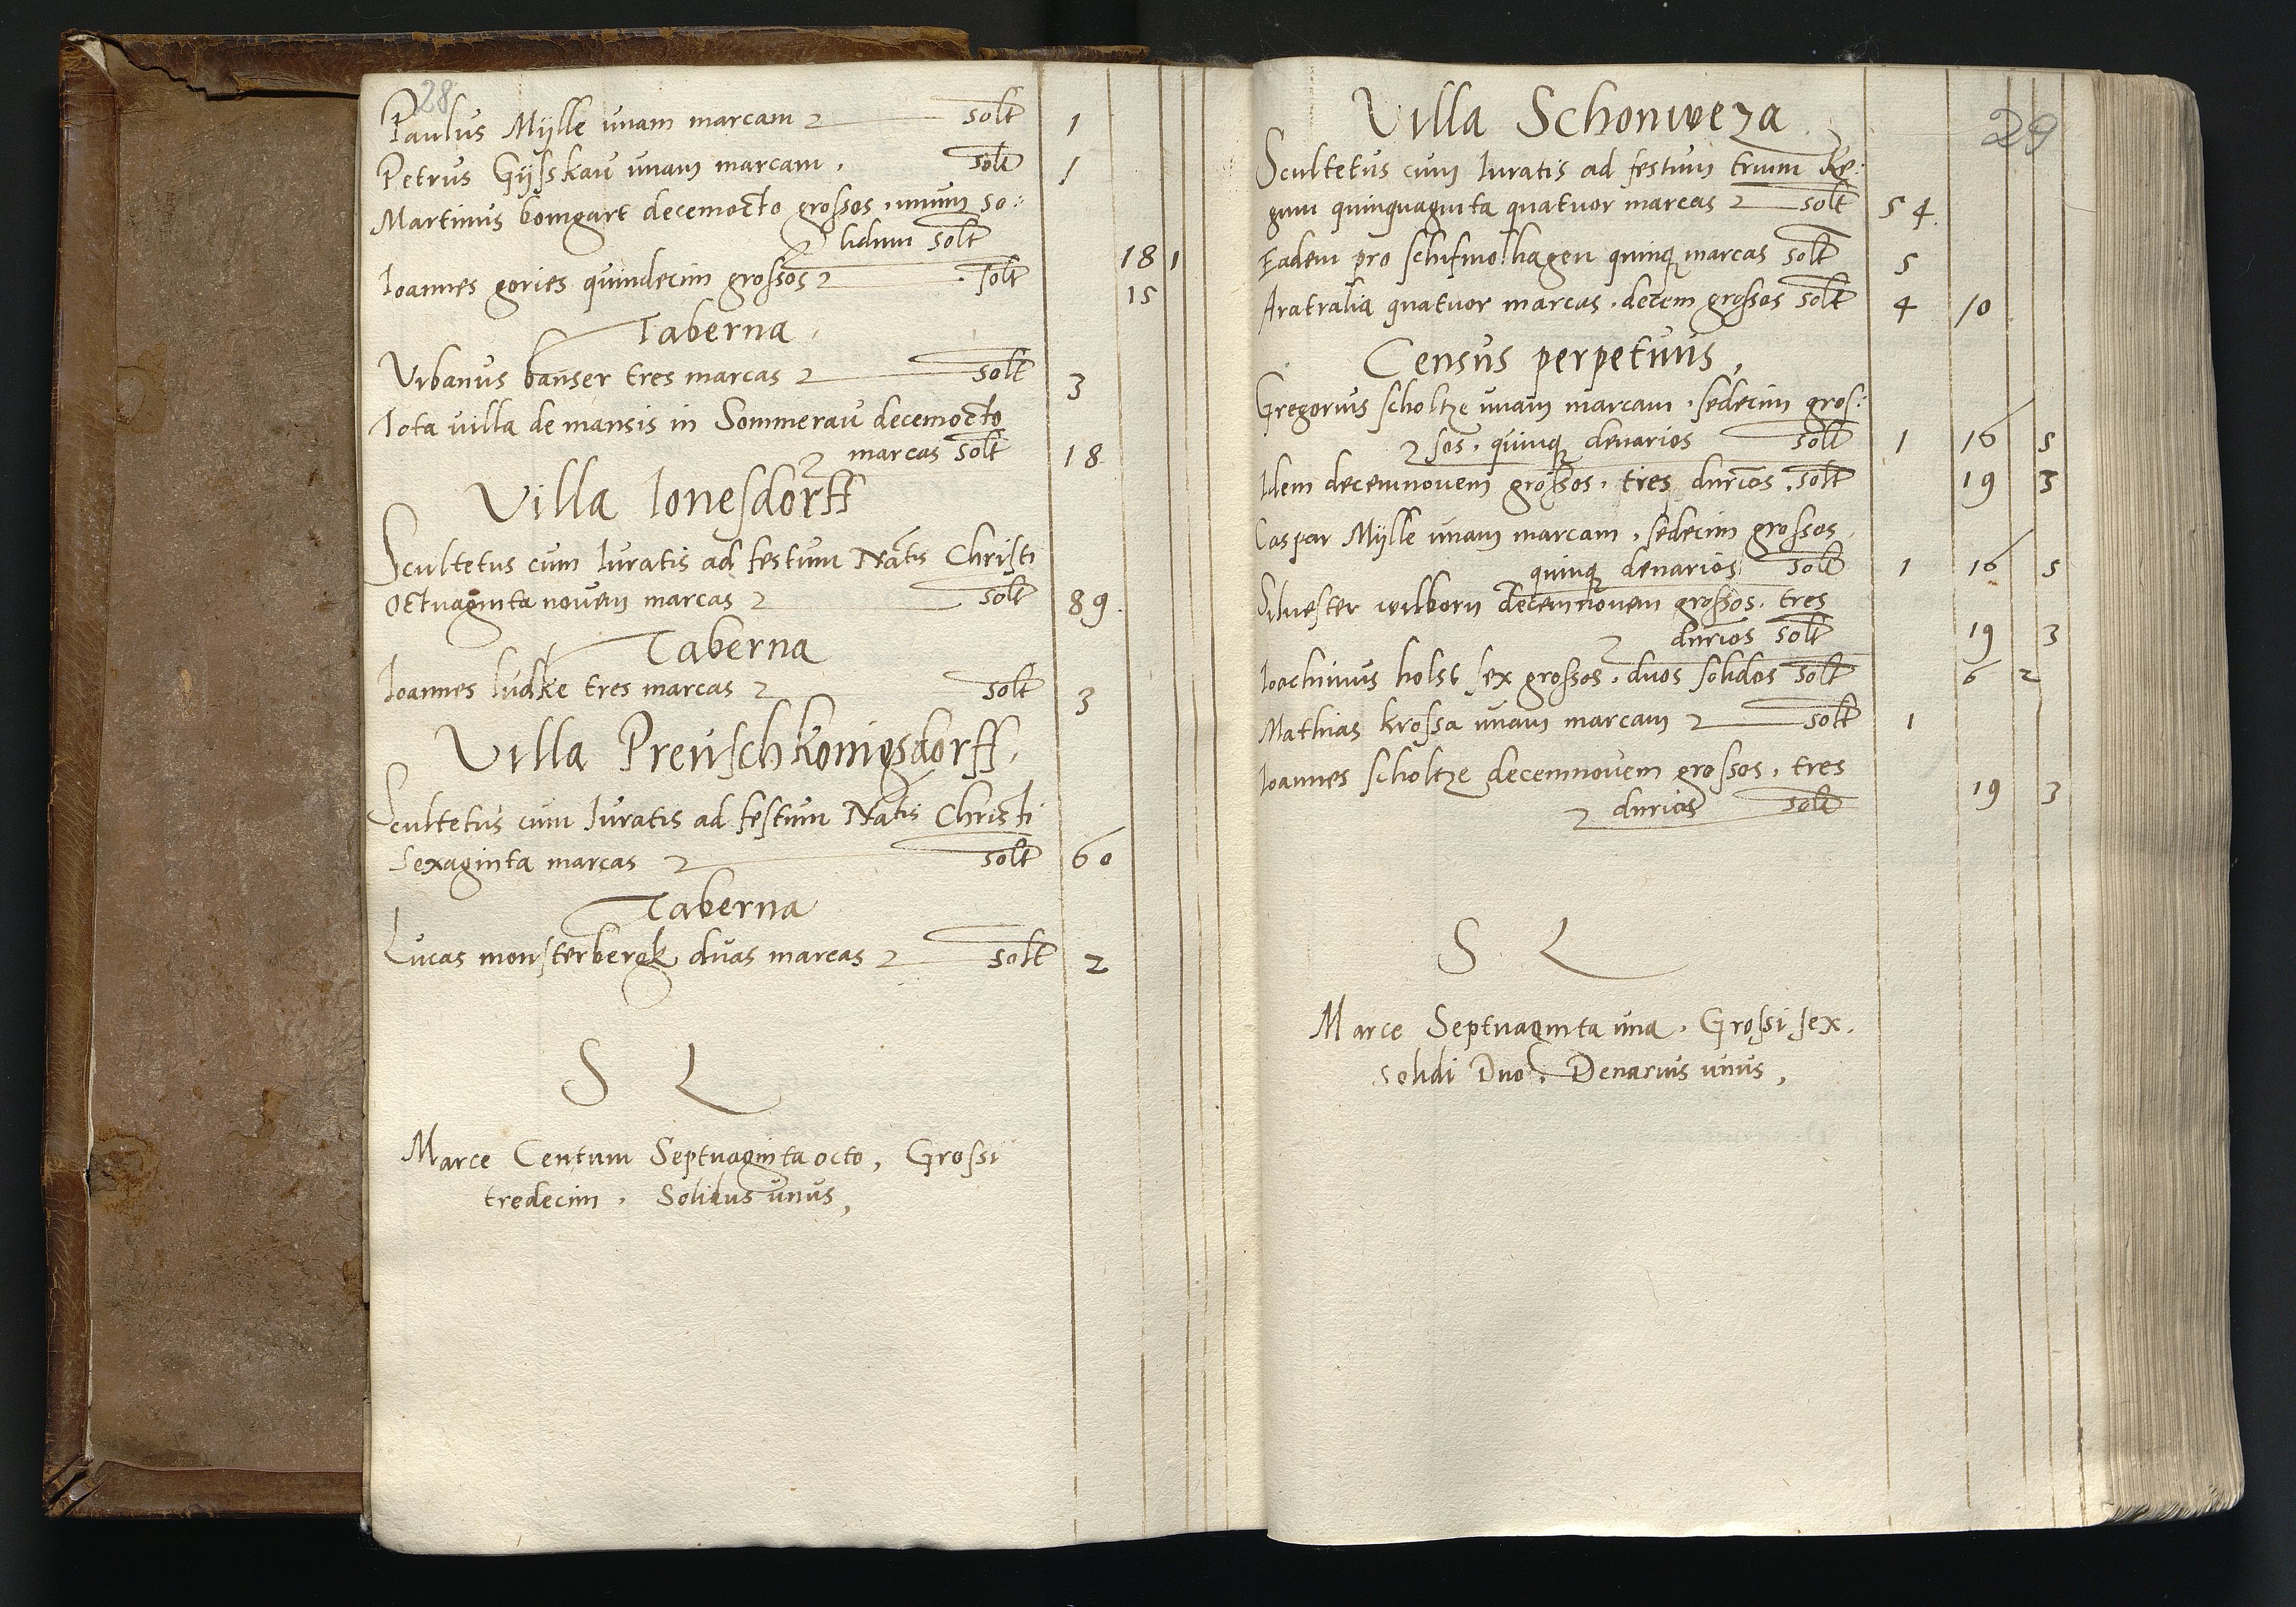 28
Paulus Mylle unam marcam solt 1
Petrus Gysskau unam marcam, solt 1
Martinus bomgart decemocto grossos, unum so:
lidum solt 18 1
Ioannes gories quindecim grossos solt 15
Taberna
Urbanus banser tres marcas solt 3
Tota villa de mansis in Sommerau decemocto
marcas solt 18
Villa Ionesdorff
Scultetus cum Iuratis ad festum Natis Christi
octuaginta novem marcas solt 89
Taberna
Ioannes ludke tres marcas solt 3
Villa Preuschkonigsdorff,
Scultetus cum Iuratis ad festum Natis Christi
Sexaginta marcas solt 60
Taberna
Lucas monsterbergk duas marcas solt 2
S L
Marce Centum Septuaginta octo, Grossi
tredecim, Solidus unus,
29
Villa Schonweza
Scultetus cum Iuratis ad festum trium Re:
gum quinquaginta quatuor marcas solt 54
Eadem pro schufmolhagen quinq marcas solt 5
Aratralia quatuor marcas, decem grossos solt 4 10
Census perpetuus,
Gregorius scholtze unam marcam, sedecim gros:
sos, quinq denarios solt 1 16 5
Idem decemnovem grossos, tres dnrios, solt 19 3
Caspar Mylle unam marcam, sedecim grossos,
quinq denarios solt 1 16 5
Silvester wilborn decemnovem grossos, tres
dnrios solt 19 3
Ioachimus holst sex grossos, duos solidos solt 6 2
Mathias krossa unam marcam solt 1
Ioannes scholtze decemnovem grossos, tres
dnrios solt 19 3
S L
Marce Septuaginta una, Grossi sex,
solidi Duo, Denarius unus,